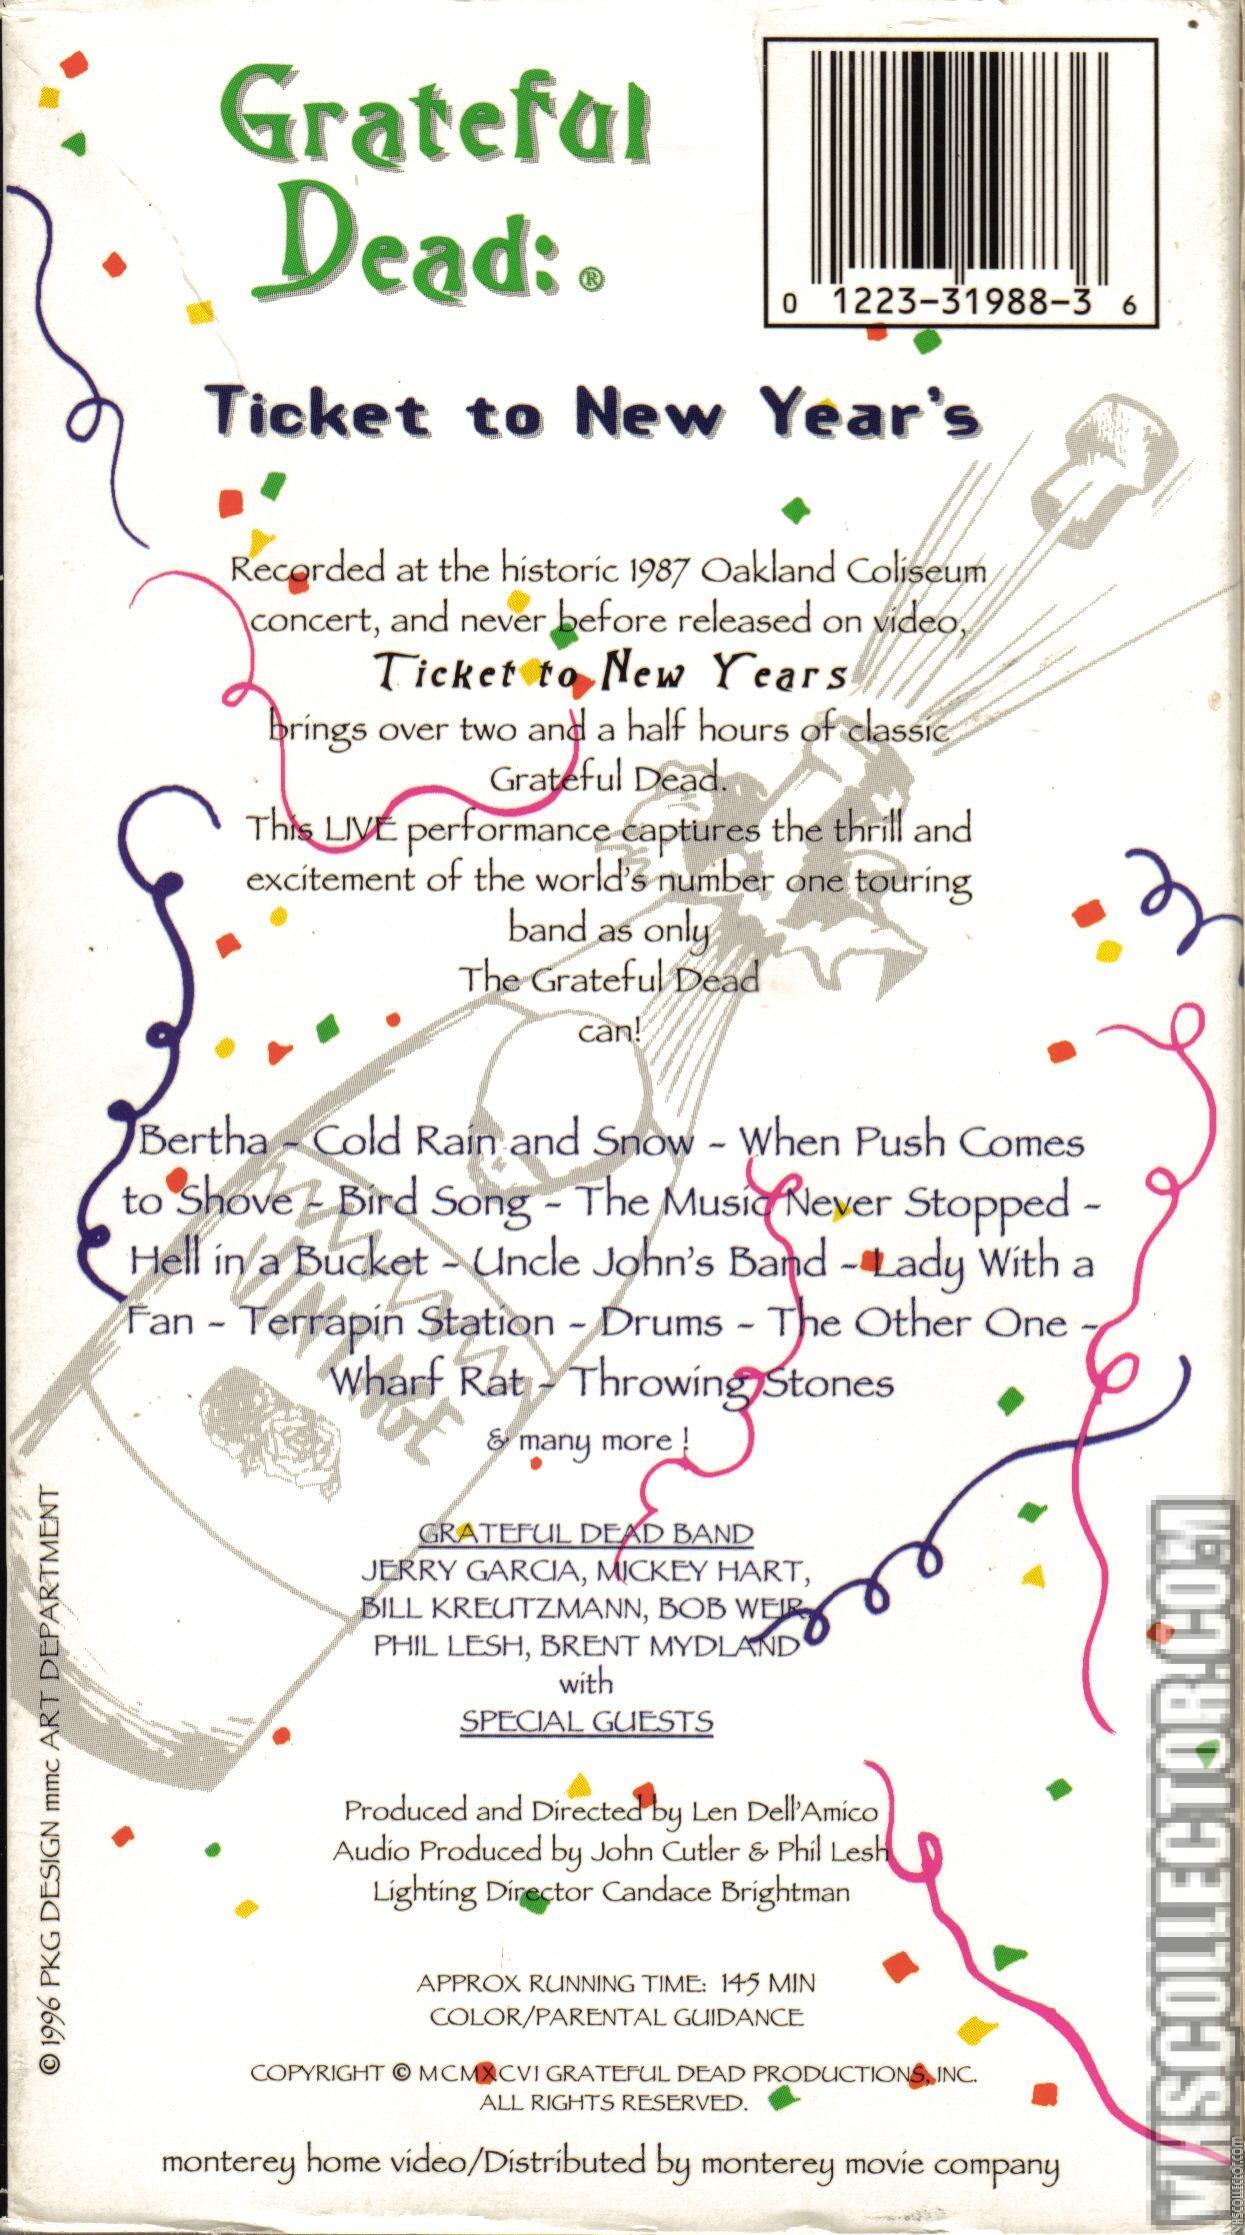 Grateful
Dead:®
0 1223-31988-3 6
Ticket to New Year's
Recorded at the historic 1987 Oakland Coliseum
concert, and never before released on video,
Ticket to New Years
brings over two and a half hours of classic
Grateful Dead.
This LIVE performance captures the thrill and
excitement of the world's number one touring
band as only
The Grateful Dead
can!
Bertha - Cold Rain and Snow - When Push Comes
to Shove - Bird Song - The Music Never Stopped -
Hell in a Bucket - Uncle John's Band - Lady With a
Fan - Terrapin Station - Drums - The Other One -
Wharf Rat - Throwing Stones
& many more !
GRATEFUL DEAD BAND
JERRY GARCIA, MICKEY HART,
BILL KREUTZMANN, BOB WEIR
PHIL LESH, BRENT MYDLAND
with
SPECIAL GUESTS
Produced and Directed by Len Dell'Amico
Audio Produced by John Cutler & Phil Lesh
Lighting Director Candace Brightman
APPROX RUNNING TIME: 145 MIN
COLOR/PARENTAL GUIDANCE
COPYRIGHT © MCMXCVI GRATEFUL DEAD PRODUCTIONS, INC.
ALL RIGHTS RESERVED.
monterey home video/Distributed by monterey movie company
© 1996 PKG DESIGN mmc ART DEPARTMENT
VHSCOLLECTOR.COM